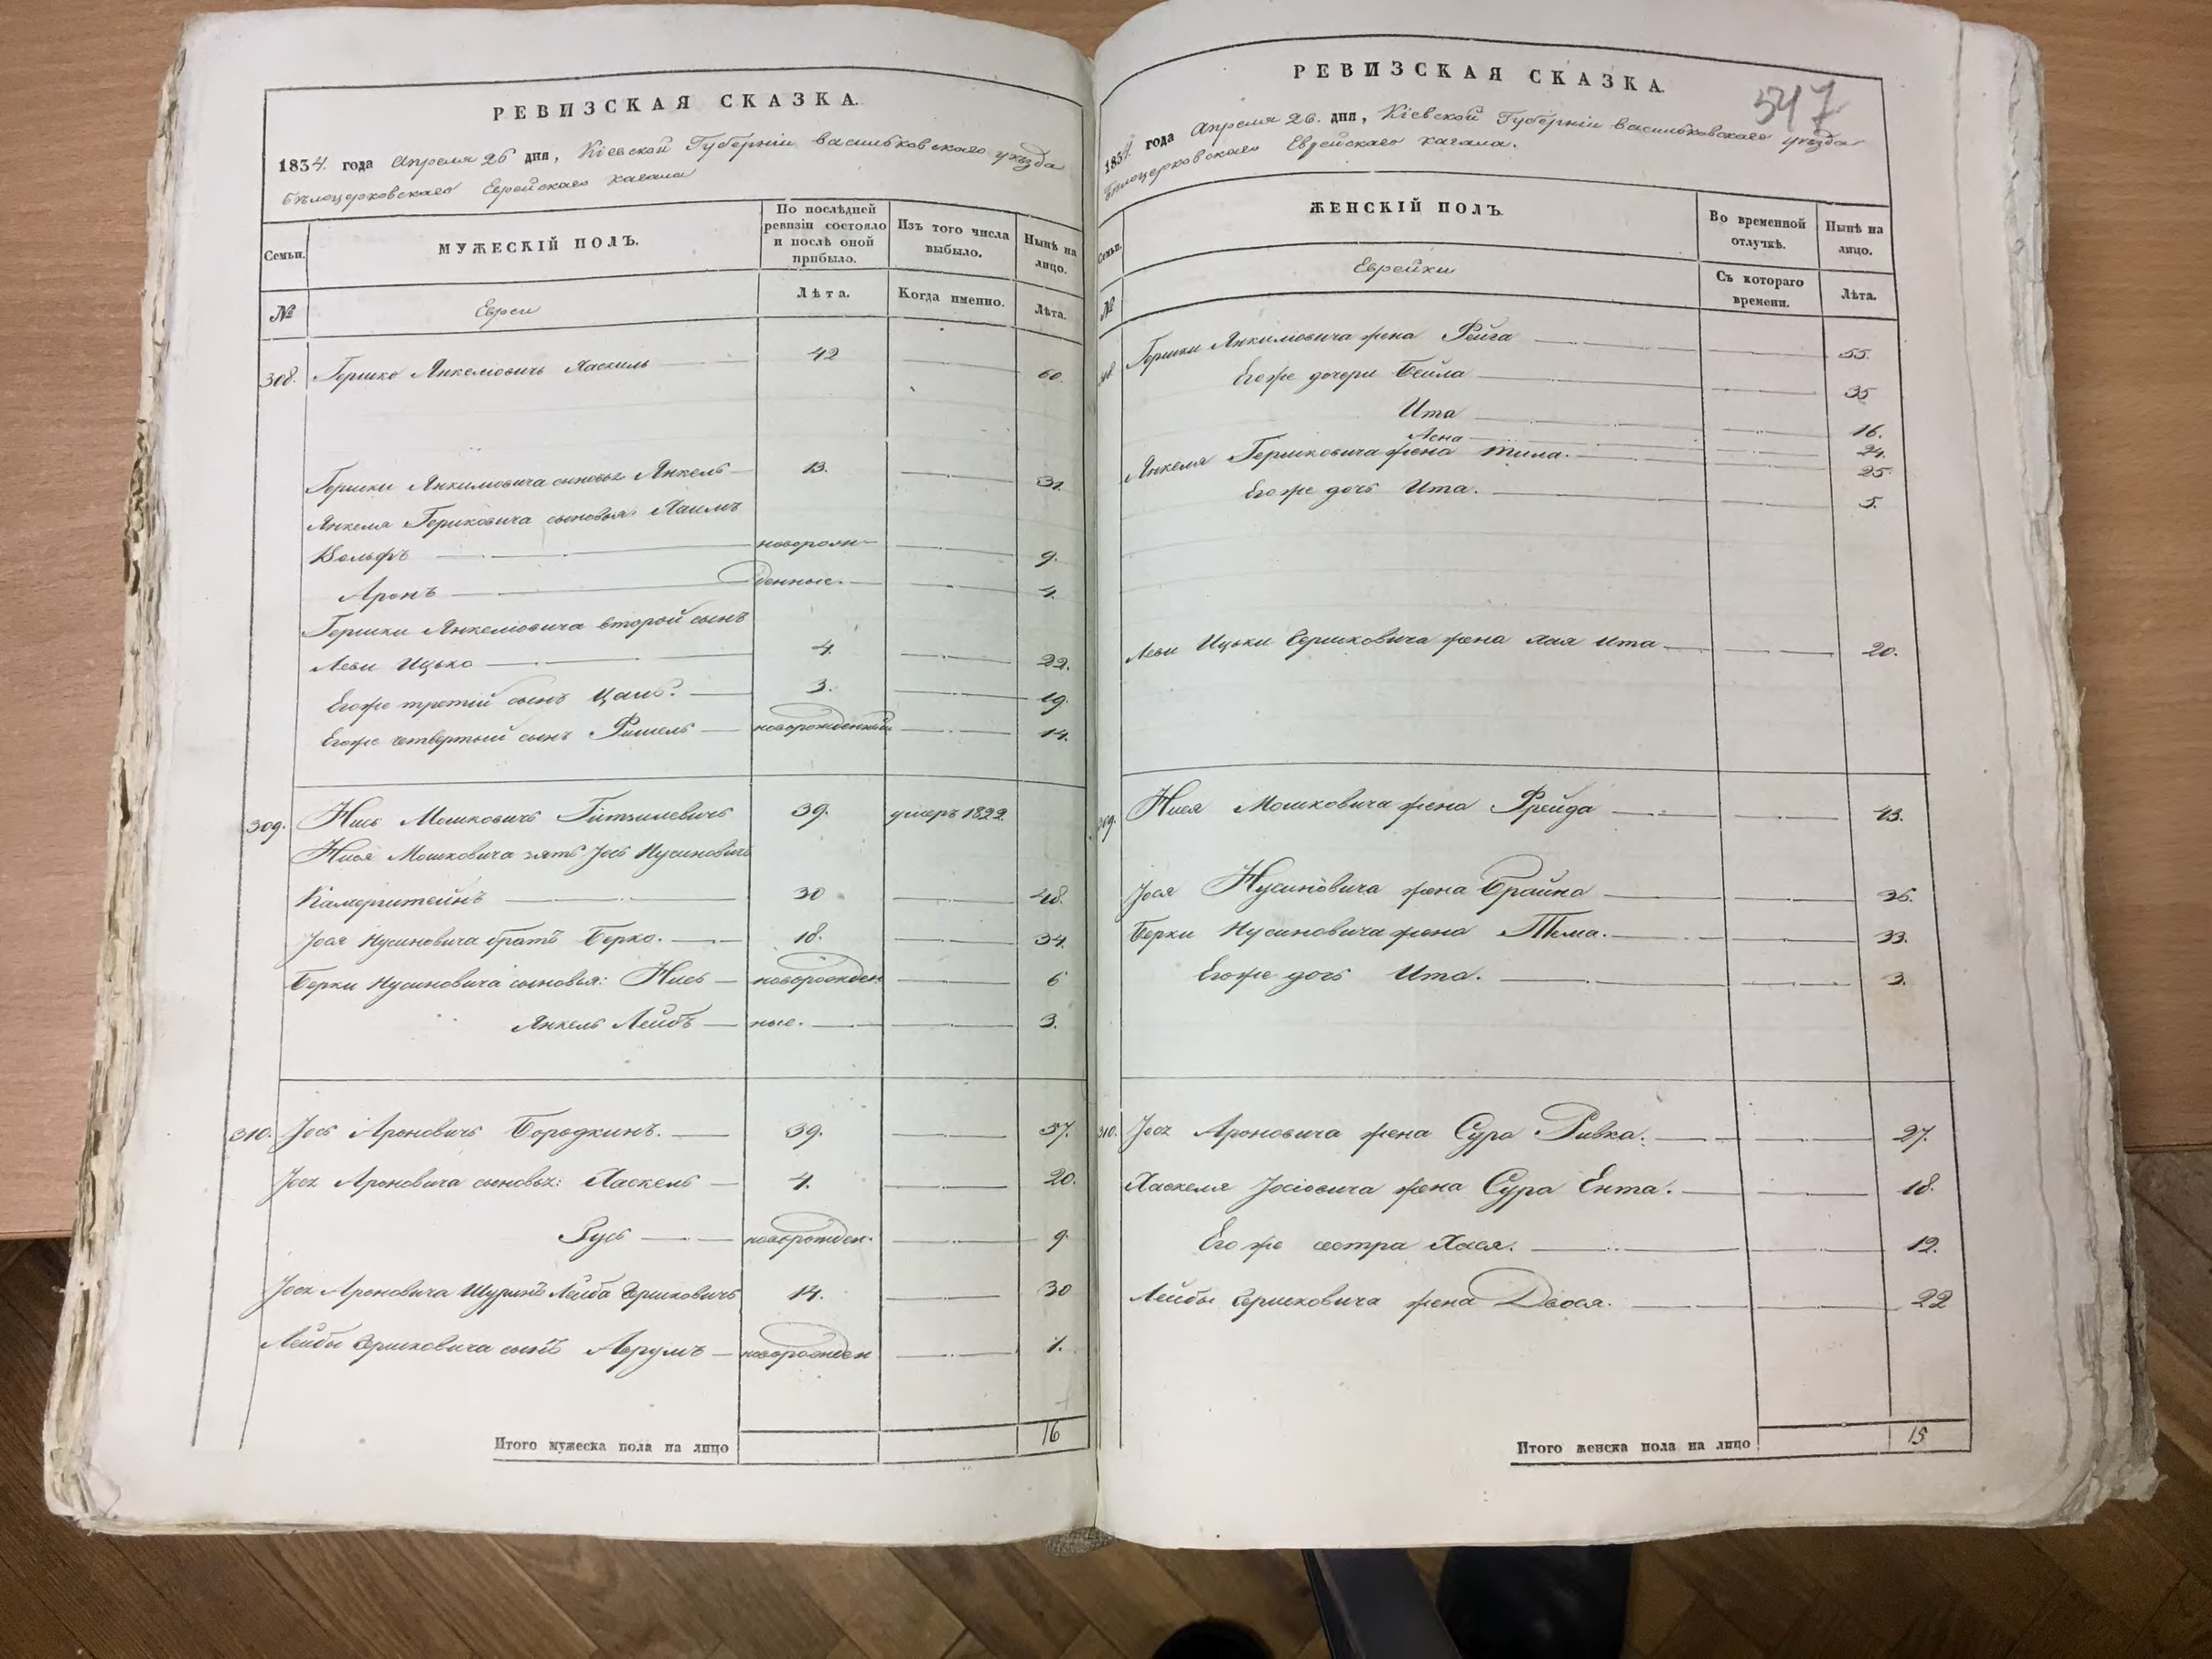 РЕВИЗСКАЯ СКАЗКА.
1834. года Апреля 26 дня, Кіевской Губерніи Васильковского уезда
Белоцерковскаго Еврейскаго Кагала
Семьи.
МУЖЕСКІЙ ПОЛЪ.
По послѣдней ревизіи состояло и послѣ оной прибыло.
Изъ того числа выбыло.
Нынѣ на лицо.
№
Евреи
Лѣта.
Когда именно.
Лѣта.
308. Гершко Янкелiовичь Хаскиль 42 60.
Гершки Янкилiовича сыновья Янкель 13. 31.
Янкеля Гершковича сыновья Хаимъ
Вольфъ новорож- 9.
Аронъ денные. 4.
Гершки Янкелiовича второй сынъ
Леви Ицько 4. 22.
Его же третiй сынъ 3. 19.
Его же четвертый сынъ новорожденный 14.
309. Нись Мошковичь 39. умеръ 1822.
Нися Мошковича зять Іось Нусиновичь
Камерштейнъ 30 48.
Іося Нусиновича братъ Берко. 18. 34.
Берки Нусиновича сыновья: Нись новорожден 6
Янкель Лейбъ ные. 3.
310. Іось Ароновичь Бородкинъ. 39. 57.
Іося Ароновича сыновья: Хаскель 4. 20.
Зусь новорожден. 9.
Іося Ароновича Шуринъ Лейба Гершковичь 14. 30
Лейбы Гершковича сынъ Аврумъ новорожден 1.
Итого мужеска пола на лицо 16
547
РЕВИЗСКАЯ СКАЗКА.
1834. года Апреля 26. дня, Кіевской Губерніи Васильковскаго уезда
Белоцерковскаго Еврейскаго Кагала.
Семьи.
ЖЕНСКІЙ ПОЛЪ.
Во временной отлучкѣ.
Нынѣ на лицо.
№
Еврейки
Съ котораго времени.
Лѣта.
308. Гершки Янкилiовича жена Рейга 55.
Его же дочери Бейла 35
Ита 16.
Асна 24.
Янкеля Гершковича жена 25.
Его же дочь Ита. 5.
Леви Ицьки Гершковича жена Хая Ита 20.
309. Нися Мошковича жена Фрейда 43.
Іося Нусиновича жена Брайна 35.
Берки Нусиновича жена Тема. 33.
Его же дочь Ита. 3.
310. Іося Ароновича жена Сура Ривка. 27.
Хаскеля Іосiовича жена Сура Ента. 18.
Его же сестра Хася. 12.
Лейбы Гершковича жена Двося. 22
Итого женска пола на лицо 15